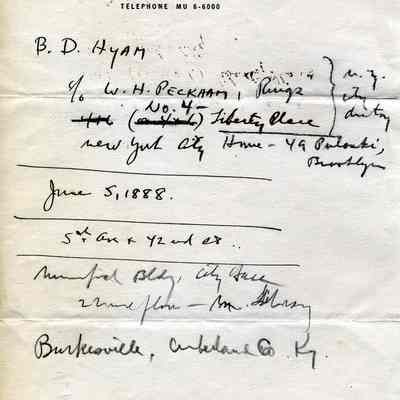 TELEPHONE MU 6-6000
B. D. HYAM
c/o W. H. PECKHAM, Rings
No. 4-
Liberty Place
N.Y.
City
New York City Home - 49 Pulaski,
Brooklyn
June 5, 1888.
5th Ave & 42nd St..
Municipal Bldg,
floor - Mr.
Burkesville, Cumberland Co Ky.